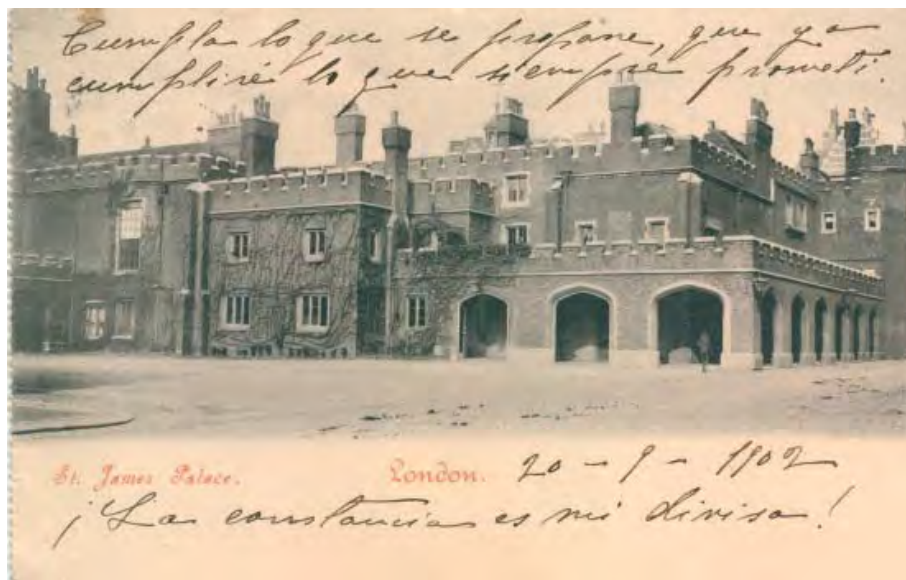 Cumpla lo que se propone, que yo
cumpliré lo que siempre prometí.
St. James Palace. London. 20 - 9 - 1902
¡La constancia es mi divisa!